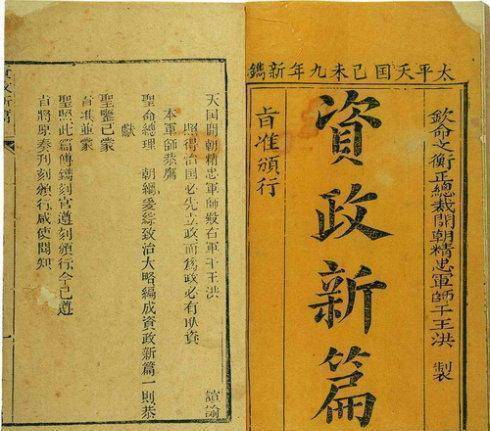 太平天囯己未九年新鐫
欽命文衡正總裁開朝精忠軍師干王洪 製
資政新篇
旨准頒行
天囯開朝精忠軍師殿右軍干王洪
諭
照得治囯必先立政而為政必有取資
本軍師恭膺
聖命總理 朝綱爰綜致治大略編成資政新篇一則恭
獻
聖鑒已蒙
旨准並蒙
聖照此篇傳鐫刻官遵刻頒行今已遵
旨將原奏刊刻頒行咸使聞知
政新篇
一